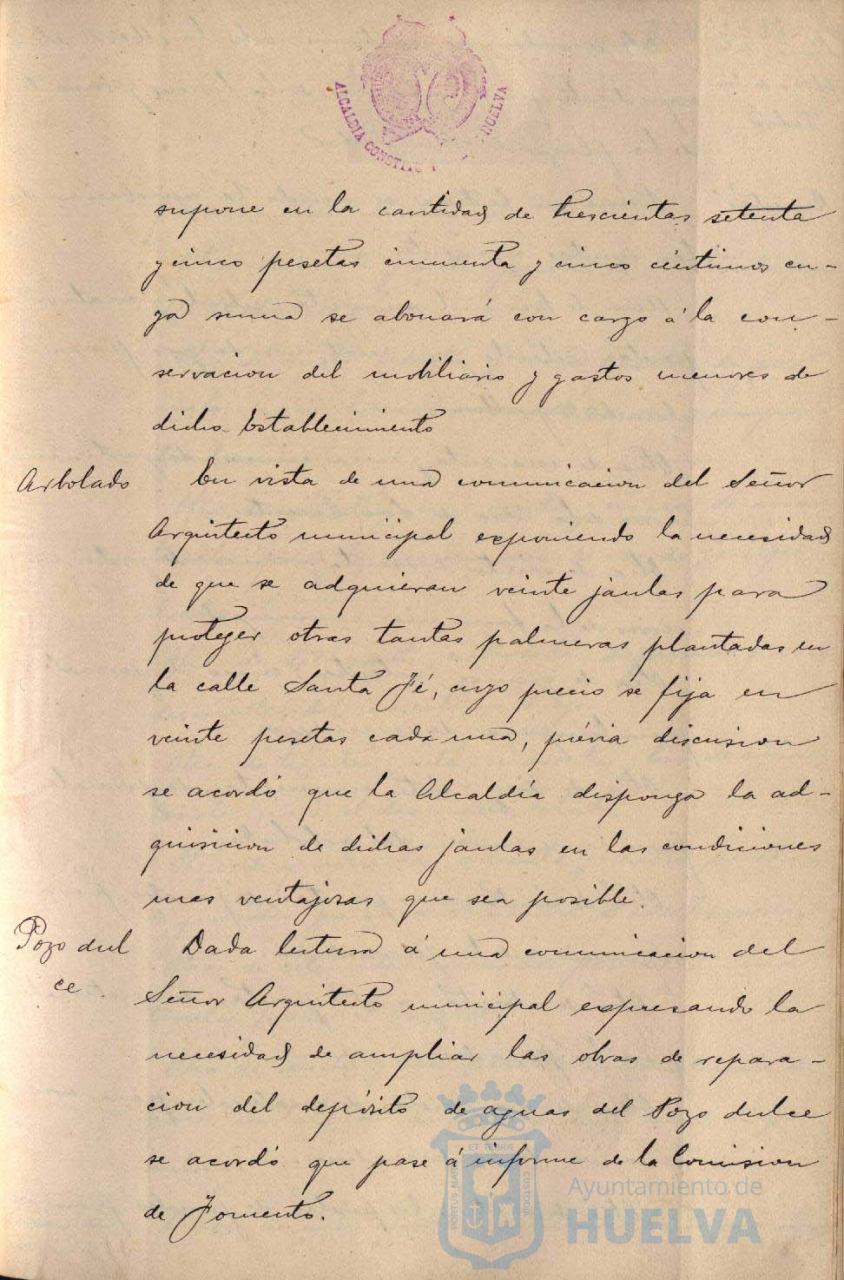 ALCALDIA CONSTIT HUELVA
supone en la cantidad de trescientas setenta
y cinco pesetas cincuenta y cinco céntimos cu-
ya suma se abonará con cargo á la con-
servacion del mobiliario y gastos menores de
dicho Establecimiento
Arbolado
En vista de una comunicacion del Señor
Arquitecto municipal exponiendo la necesidad
de que se adquieran veinte jaulas para
proteger otras tantas palmeras plantadas en
la calle Santa Fé, cuyo precio se fija en
veinte pesetas cada una, prévia discusion
se acordó que la Alcaldía disponga la ad-
quisicion de dichas jaulas en las condiciones
mas ventajosas que sea posible.
Pozo dul
ce.
Dada lectura á una comunicacion del
Señor Arquitecto municipal expresando la
necesidad de ampliar las obras de repara-
cion del depósito de aguas del Pozo dulce
se acordó que pase á informe de la Comision
de Fomento.
Ayuntamiento de
HUELVA